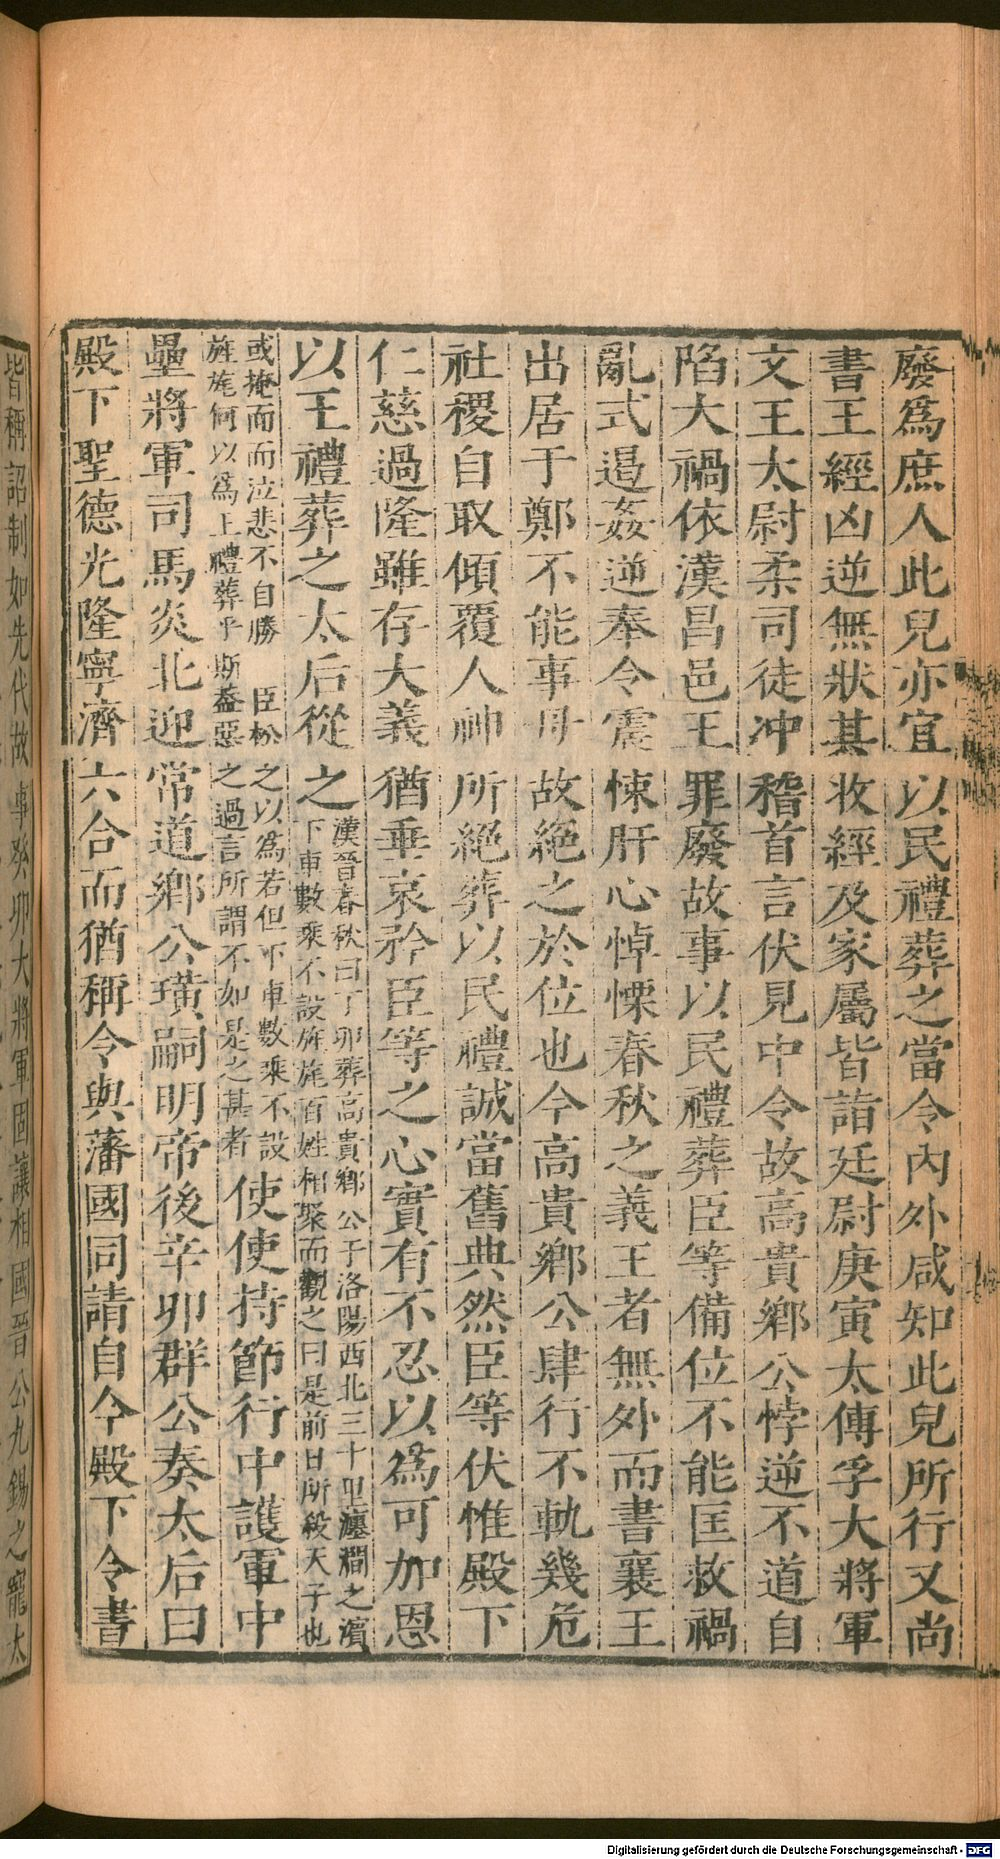 廢爲庶人此兒亦宜以民禮葬之當令內外咸知此兒所行又尚
書王經凶逆無狀其收經及家屬皆詣廷尉庚寅太傅孚大將軍
文王太尉柔司徒冲稽首言伏見中令故高貴鄉公悖逆不道自
陷大禍依漢昌邑王罪廢故事以民禮葬臣等備位不能匡救禍
亂式遏姦逆奉令震悚肝心悼慄春秋之義王者無外而書襄王
出居于鄭不能事母故絕之於位也今高貴鄉公肆行不軌幾危
社稷自取傾覆人神所絕葬以民禮誠當舊典然臣等伏惟殿下
仁慈過隆雖存大義猶垂哀矜臣等之心實有不忍以爲可加恩
以王禮葬之太后從之漢晉春秋曰丁卯葬高貴鄉公于洛陽西北三十里瀍澗之濱
下車數乘不設旌旄百姓相聚而觀之曰是前日所殺天子也
或掩面而泣悲不自勝 臣松之以爲若但下車數乘不設
旌旄何以爲上禮葬乎斯蓋惡之過言所謂不如是之甚者
使使持節行中護軍中
壘將軍司馬炎北迎常道鄉公璜嗣明帝後辛卯群公奏太后曰
殿下聖德光隆寧濟六合而猶稱令與藩國同請自今殿下令書
皆稱詔制如先代故事癸卯大將軍固讓相國晉公九錫之寵太
Digitalisierung gefördert durch die Deutsche Forschungsgemeinschaft - DFG